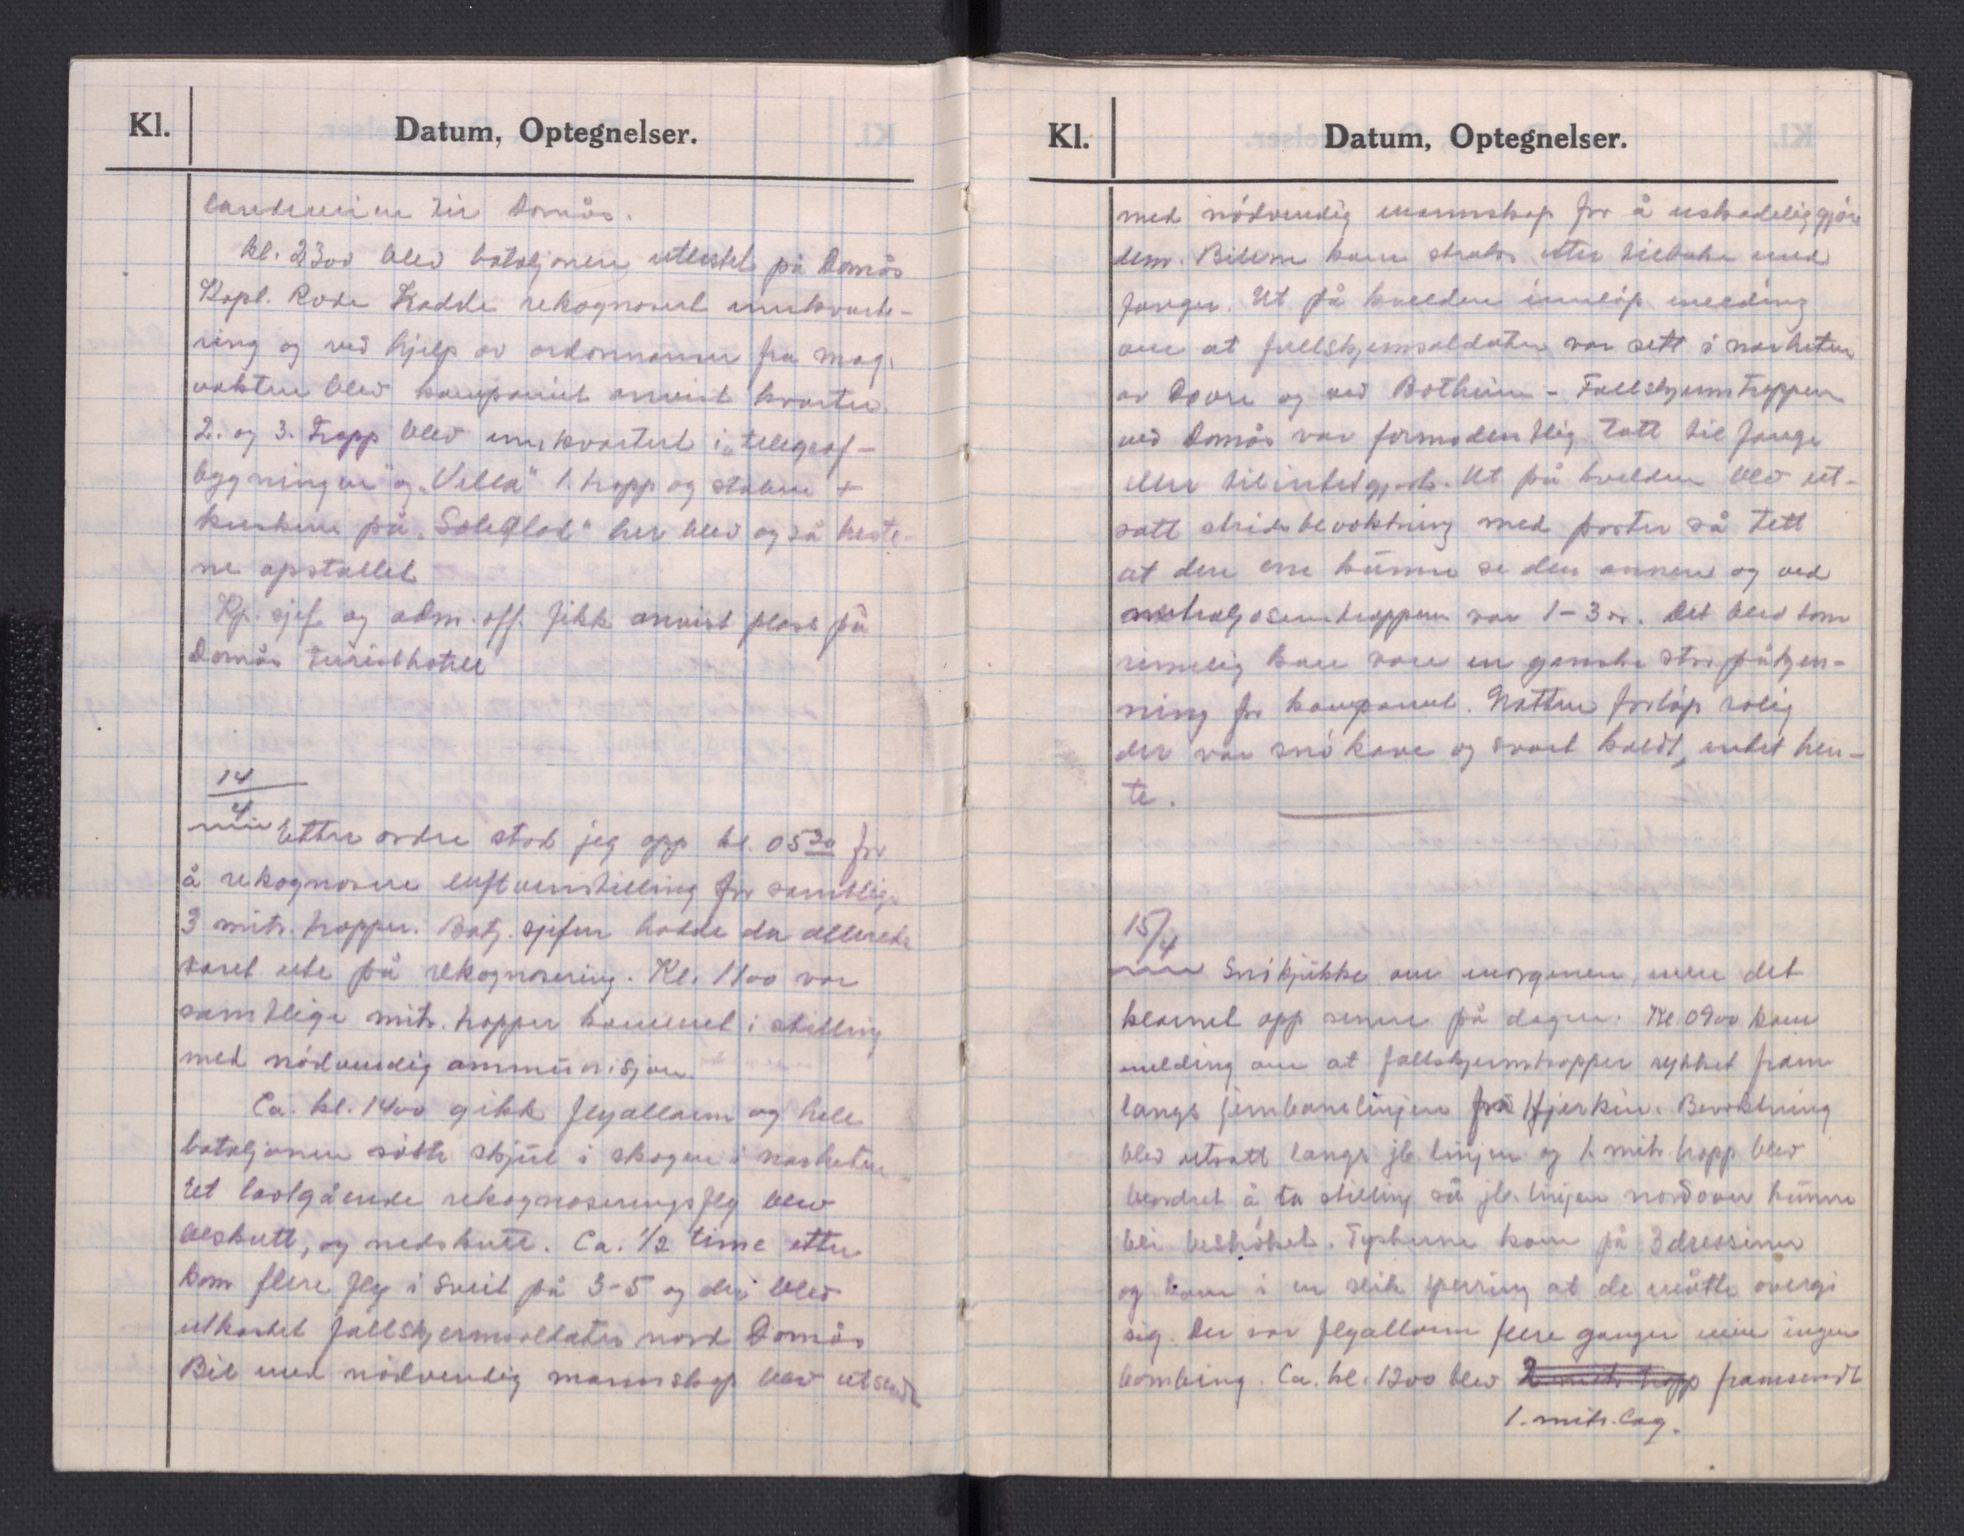 Kl. Datum, Optegnelser.
til Domås.
kl. 2300 blev bataljonen utlastet på Domås
Kapt. Rode hadde rekognosert innkvarte-
ring og ved hjelp av ordonnanser fra mag.
vakten blev kompaniet anvist kvarter.
2. og 3. tropp blev innkvartert i „telegraf-
bygningen" og „Villa" 1. tropp og staben +
kuskene på „Soleglad" her blev og så heste-
ne opstallet
Kp. sjef og adm. off. fikk anvist plass på
Domås turisthotell
14/4
Etter ordre stod jeg opp kl. 0530 for
å rekognosere luftvernstilling for samtlige
3 mitr. tropper. Batj. sjefen hadde da allerede
varet ute på rekognosering. Kl. 1100 var
samtlige mitr. tropper kommet i stilling
med nödvendig ammunisjon.
Ca. kl. 1400 gikk flyallarm og hele
bataljonen sökte skjul i skogen i nærheten
Et lavtgående rekognoseringsfly blev
beskutt, og nedskutt. Ca. 1/2 time etter
kom flere fly i sveit på 3-5 og det blev
utkastet fallskjermsoldater nord Domås
Bil med nödvendig mannskap blev utsendt
Kl. Datum, Optegnelser.
med nödvendig mannskap for å uskadeliggjöre
dem. Bilene kom straks etter tilbake med
fanger. Ut på kvelden innlöp melding
om at fallskjermsoldater var sett i nærheten
av Dovre og ved Bottheim - Fallskjermtroppen
ved Domås var formodentlig tatt til fange
eller tilintetgjort. Ut på kvelden blev ut-
satt stridsbevoktning med poster så tett
at den ene kunne se den annen og ved
mitraljösentroppene var 1-3 . Det blev som
rimelig kan være en ganske stor påkjen-
ning for kompaniet. Natten forlöp rolig
det var snö kave og svært kaldt, intet hen-
te.
15/4
Snötjukke om morgenen, men det
klarnet opp senere på dagen. Kl. 0900 kom
melding om at fallskjermtropper rykket fram
langs jernbanelinjen fra Hjerkin. Bevoktning
blev utsatt langs jb. linjen og 1. mitr. tropp blev
beordret å ta stilling så jb. linjen nordover kunne
bli beskötet. Tyskerne kom på 3 dressiner
og kom i en slik sperring at de måtte overgi
sig. Der var flyallarm flere ganger men ingen
bombing. Ca. kl. 1200 blev 2 mitr. tropp framsendt
1. mitr. lag.